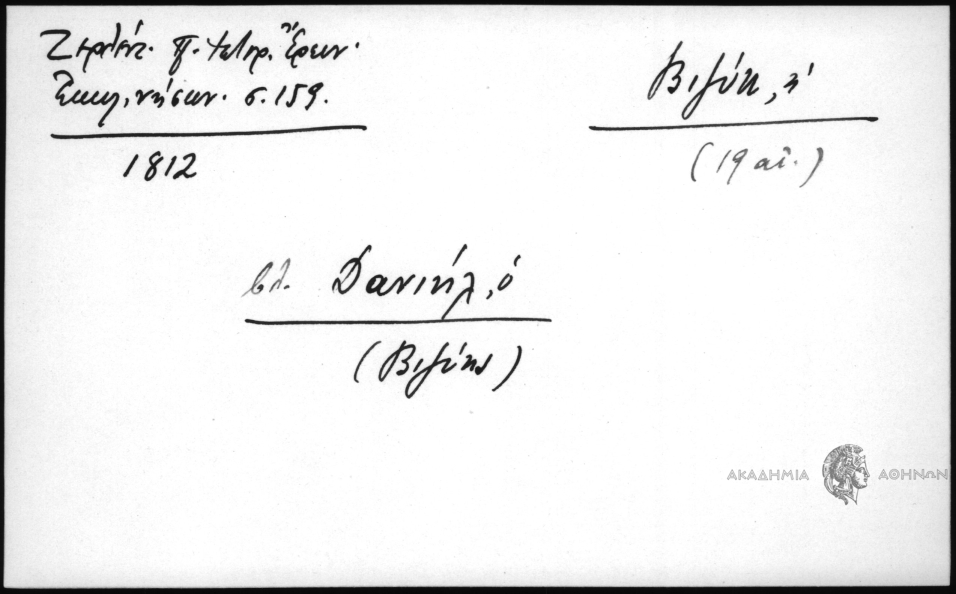 Ζερλέντ. Π. Ἱστορ. Ἔρευν.
Ἐκκλ. νήσων. σ. 159.
1812
Βιζύη, ἡ
(19 αἰ.)
βλ. Δανιήλ, ὁ
(Βιζύης)
ΑΚΑΔΗΜΙΑ ΑΘΗΝΩΝ